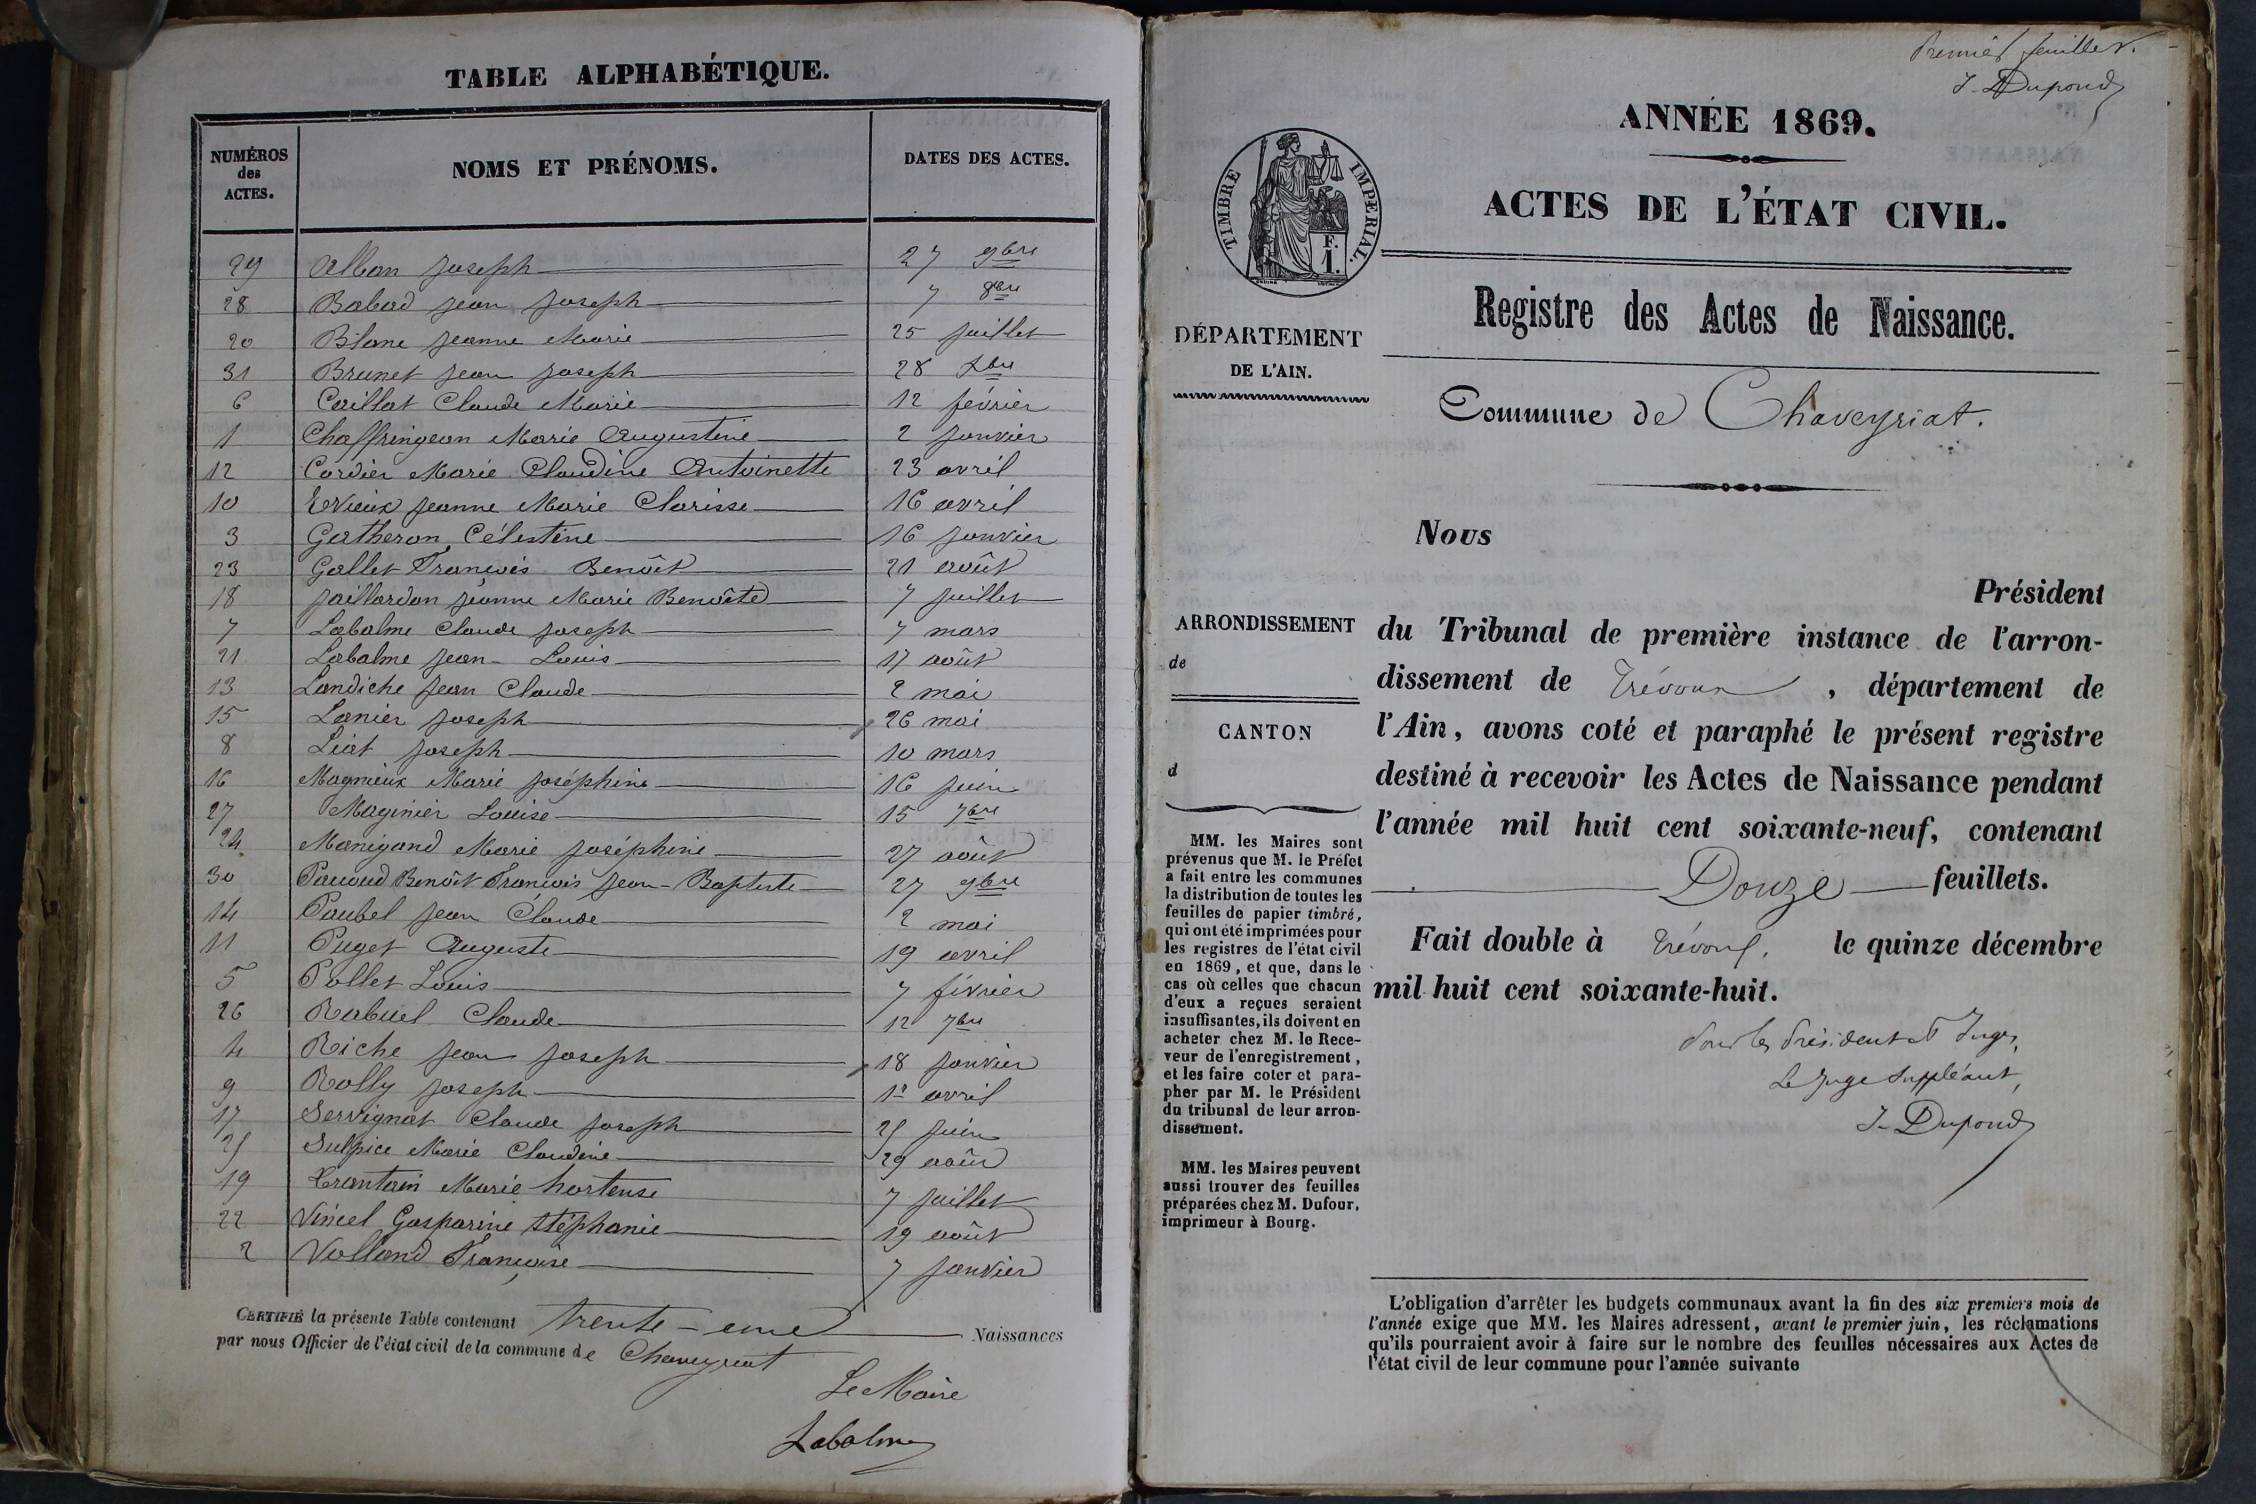 TABLE ALPHABÉTIQUE.
NUMÉROS des ACTES. NOMS ET PRÉNOMS. DATES DES ACTES.
29 Alban Joseph 27 9bre
28 Babad Jean Joseph 7 8bre
20 Blanc Jeanne Marie 25 juillet
31 Brunet Jean Joseph 28 Xbre
6 Caillat Claude Marie 12 février
1 Chaffringeon Marie Augustine 2 janvier
12 Cordier Marie Claudine Antoinette 23 avril
10 Ervieux Jeanne Marie Clarisse 16 avril
3 Gatheron Célestine 16 janvier
23 Gallet François Benoît 21 août
18 Jaillardon Jeanne Marie Benoîte 7 juillet
7 Labalme Claude Joseph 7 mars
21 Labalme Jean-Louis 17 août
13 Landiche Jean Claude 2 mai
15 Lanier Joseph 26 mai
8 Liat Joseph 10 mars
16 Magnieux Marie Joséphine 16 juin
27 Maginier Louise 15 7bre
24 Manigand Marie Joséphine 27 août
30 Pauoud Benoît François Jean-Baptiste 27 9bre
14 Paubel Jean Claude 2 mai
11 Puget Auguste 19 avril
5 Pollet Louis 7 février
26 Rabuel Claude 12 7bre
4 Riche Jean Joseph 18 janvier
9 Rolly Joseph 1er avril
17 Servignat Claude Joseph 25 juin
25 Sulpice Marie Claudine 29 août
19 Trantain Marie hortense 7 juillet
22 Viniel Gasparine Stéphanie 19 août
2 Volland Françoise 7 janvier
CERTIFIÉ la présente Table contenant trente-une Naissances
par nous Officier de l'état civil de la commune de Chaveyriat
Le Maire
Labalme
Premier feuillet.
J. Dupond
ANNÉE 1869.
ACTES DE L'ÉTAT CIVIL.
TIMBRE IMPÉRIAL.
F.
1.
Registre des Actes de Naissance.
DÉPARTEMENT
DE L'AIN.
Commune de Chaveyriat.
Nous
Président
du Tribunal de première instance de l'arron-
dissement de Trévoux, département de
l'Ain, avons coté et paraphé le présent registre
destiné à recevoir les Actes de Naissance pendant
l'année mil huit cent soixante-neuf, contenant
Douze feuillets.
Fait double à Trévoux, le quinze décembre
mil huit cent soixante-huit.
Pour les Président et Juges,
Le Juge Suppléant,
J. Dupond
ARRONDISSEMENT
de
CANTON
d
MM. les Maires sont
prévenus que M. le Préfet
a fait entre les communes
la distribution de toutes les
feuilles de papier timbré,
qui ont été imprimées pour
les registres de l'état civil
en 1869, et que, dans le
cas où celles que chacun
d'eux a reçues seraient
insuffisantes, ils doivent en
acheter chez M. le Rece-
veur de l'enregistrement,
et les faire coter et para-
pher par M. le Président
du tribunal de leur arron-
dissement.
MM. les Maires peuvent
aussi trouver des feuilles
préparées chez M. Dufour,
imprimeur à Bourg.
L'obligation d'arrêter les budgets communaux avant la fin des six premiers mois de
l'année exige que MM. les Maires adressent, avant le premier juin, les réclamations
qu'ils pourraient avoir à faire sur le nombre des feuilles nécessaires aux Actes de
l'état civil de leur commune pour l'année suivante